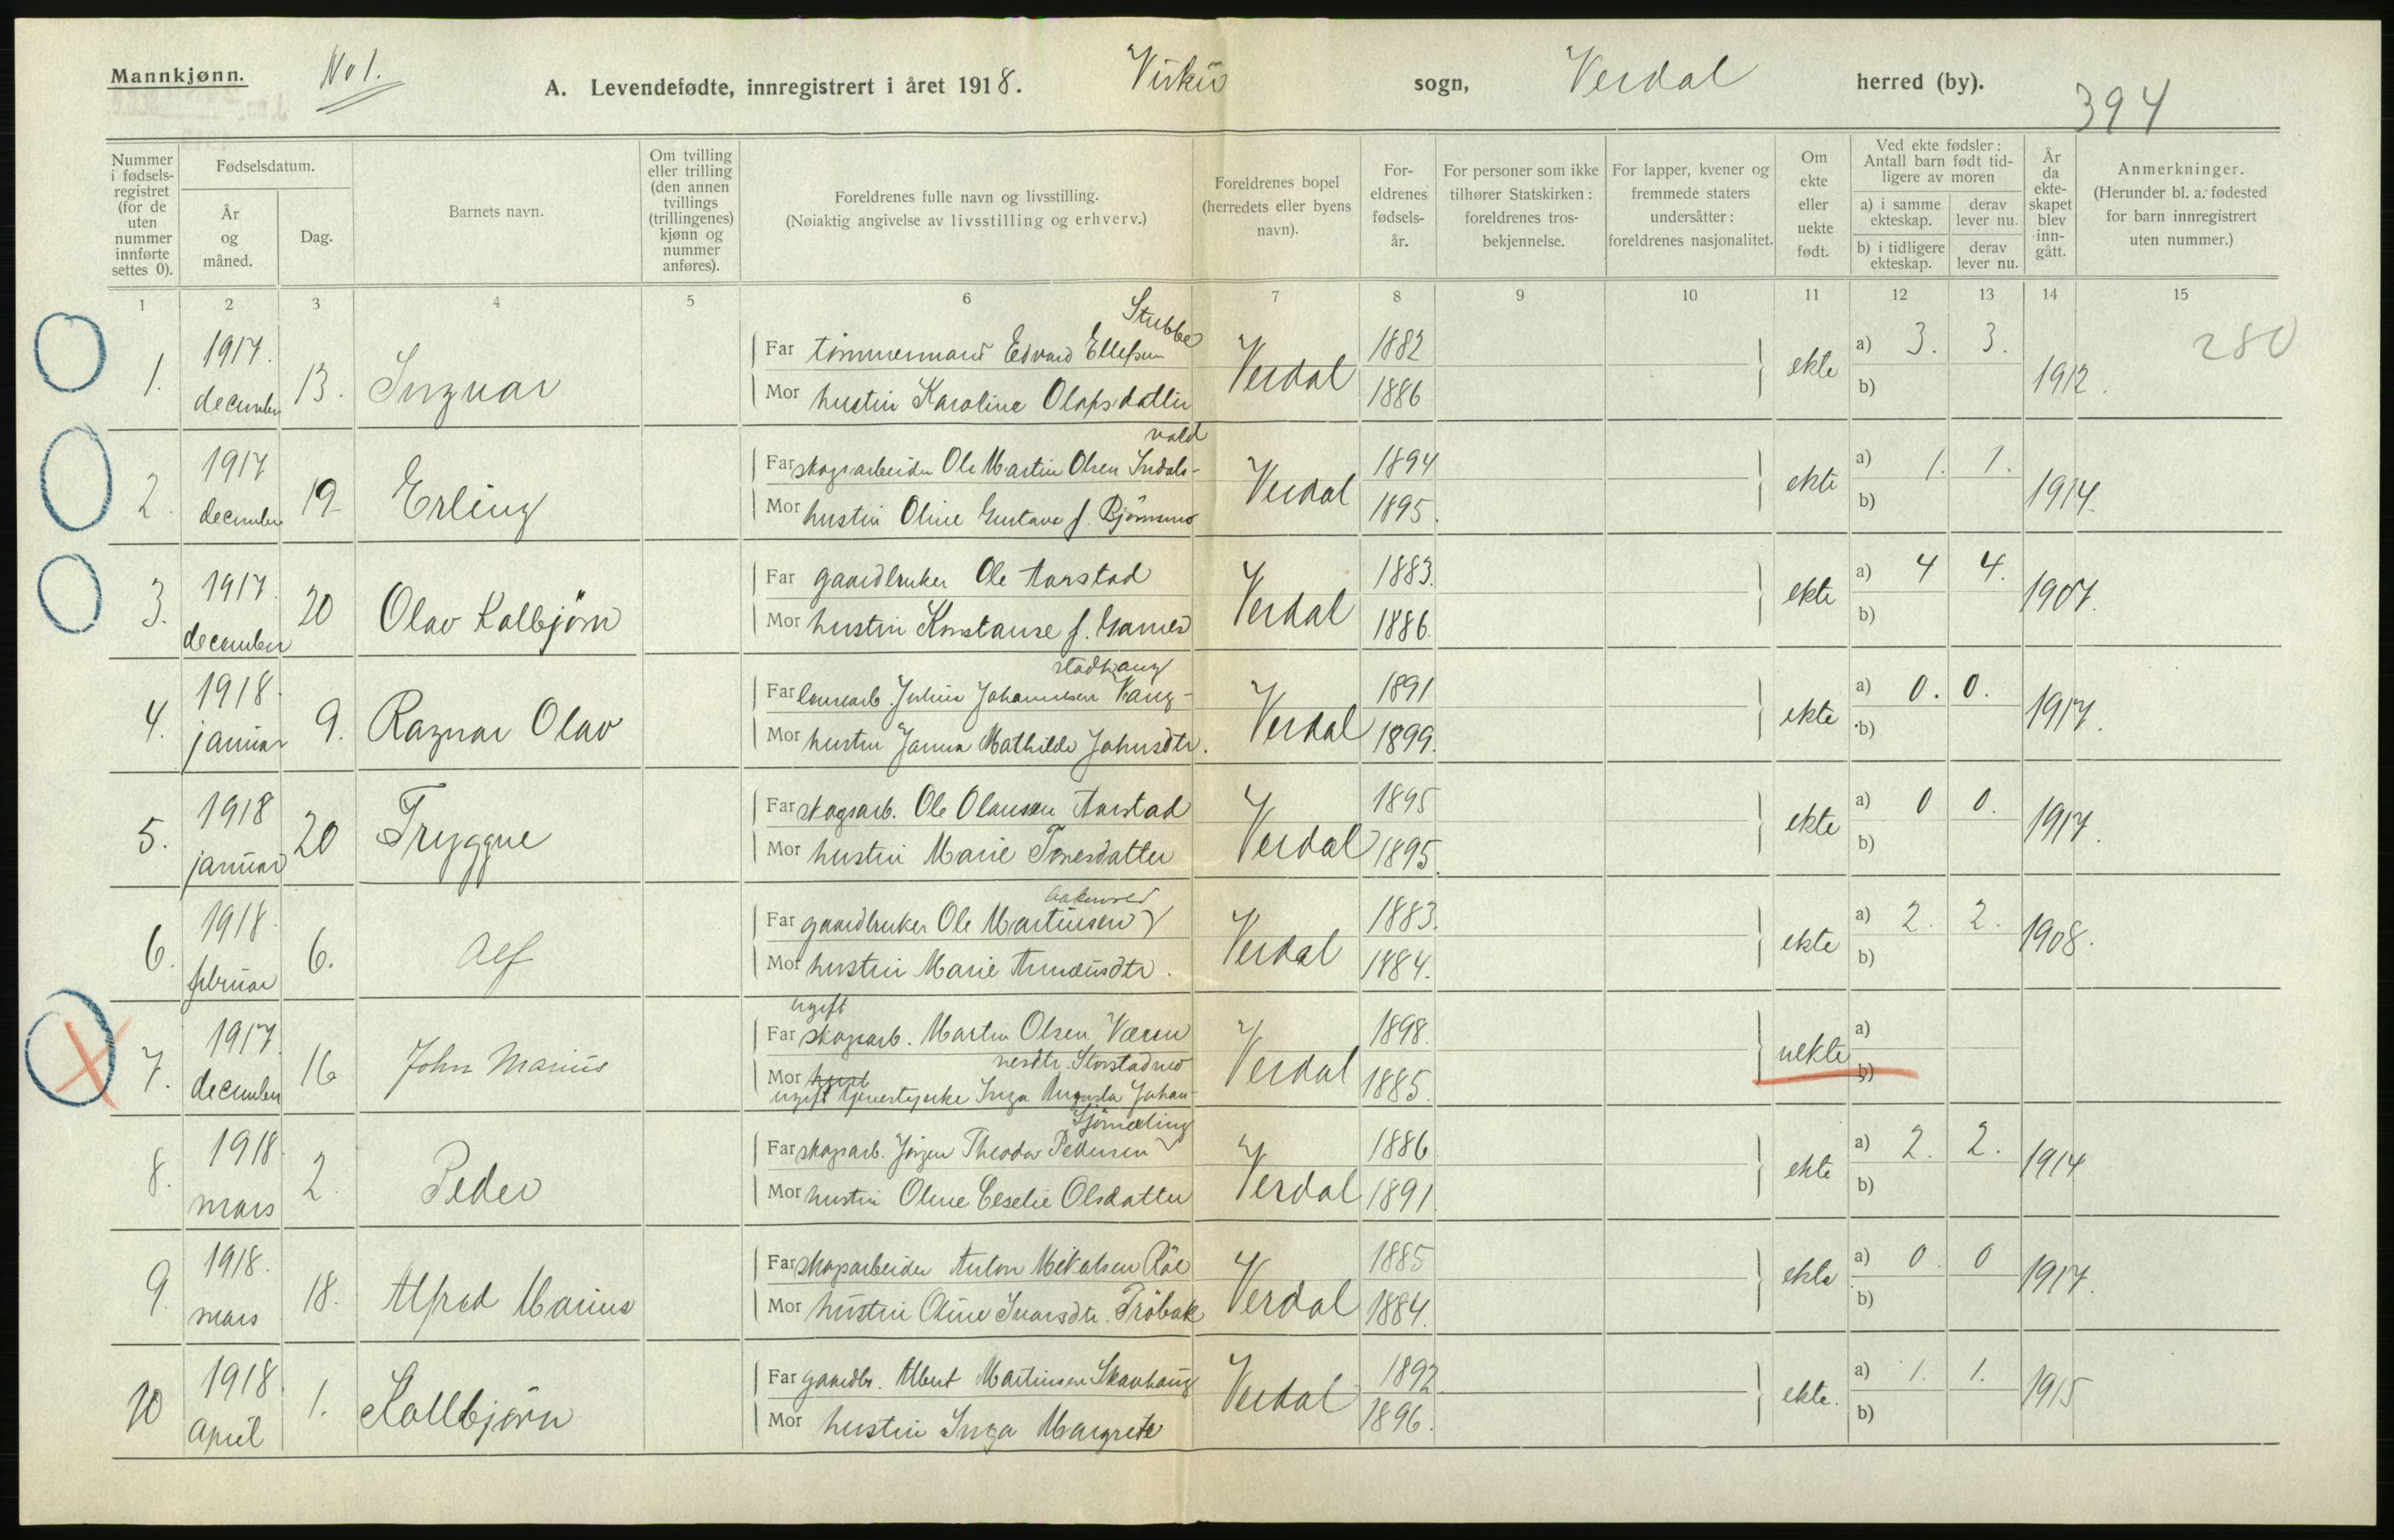 Mannkjønn.
No 1.
A. Levendefødte, innregistrert i året 1918. Vuku sogn, Verdal herred (by).
394
Nummer i fødsels-registret (for de uten nummer innførte settes 0).
Fødselsdatum.
År og måned.
Dag.
Barnets navn.
Om tvilling eller trilling (den annen tvillings (trillingenes) kjønn og nummer anføres).
Foreldrenes fulle navn og livsstilling.
(Nøiaktig angivelse av livsstilling og erhverv.)
Foreldrenes bopel (herredets eller byens navn).
For-eldrenes fødsels-år.
For personer som ikke tilhører Statskirken: foreldrenes tros-bekjennelse.
For lapper, kvener og fremmede staters undersåtter: foreldrenes nasjonalitet.
Om ekte eller uekte født.
Ved ekte fødsler: Antall barn født tid-ligere av moren
a) i samme ekteskap.
derav lever nu.
b) i tidligere ekteskap.
derav lever nu.
År da ekte-skapet blev inn-gått.
Anmerkninger.
(Herunder bl. a. fødested for barn innregistrert uten nummer.)
1 2 3 4 5 6 7 8 9 10 11 12 13 14 15
Stubbe
1. 1917. december 13. Ingvar
Far tømmermand Edvard Ellefsen Verdal 1882 ekte a) 3. 3. 1912. 280
Mor hustru Karoline Olafsdatter 1886 b)
vald
2. 1917 december 19 Erling
Far skogsarbeider Ole Martin Olsen Indals- Verdal 1894 ekte a) 1. 1. 1914.
Mor hustru Oline Gustava f. Bjørnsmo 1895. b)
3. 1917. december 20 Olav Kolbjørn
Far gaardbruker Ole Aarstad Verdal 1883. ekte a) 4 4. 1907.
Mor hustru Konstanse f. Garnes 1886. b)
stadhaug
4. 1918. januar 9. Ragnar Olav
Far Julius Johannesen Vang- Verdal 1891 ekte a) 0. 0. 1917.
Mor hustru Janna Mathilde Johnsdtr. 1899. b)
5. 1918 januar 20 Tryggve
Far skogsarb. Ole Olausen Aarstad Verdal 1895 ekte a) 0 0. 1917.
Mor hustru Marie Tonesdatter 1895. b)
6. 1918. februar 6. Alf
Far gaardbruker Ole Martinsen Verdal 1883. ekte a) 2. 2. 1908.
Mor hustru Marie 1884. b)
ugift
7. 1917. december 16 John Marius
Far skogsarb. Martin Olsen Verdal 1898. uekte a)
nesdtr. Storstadmo
Mor hust
ugift tjenestepike Inga Augusta Johan- 1885. b)
8. 1918. mars 2 Peder
Far skogsarb. Jørgen Theodor Pedersen Verdal 1886. ekte a) 2. 2. 1914
Mor hustru Oline Olsdatter 1891. b)
9. 1918. mars 18. Alfred Marius
Far skogsarbeider Anton Mikalsen Röe Verdal 1885 ekte a) 0. 0 1917.
Mor hustru Oline Ivarsdtr. Trøbak 1884. b)
10 1918. April 1. Kollbjørn
Far gaardbr. Albert Martinsen Skavhaug Verdal 1892. ekte. a) 1. 1. 1915
Mor hustru Inga Margrete 1896. b)